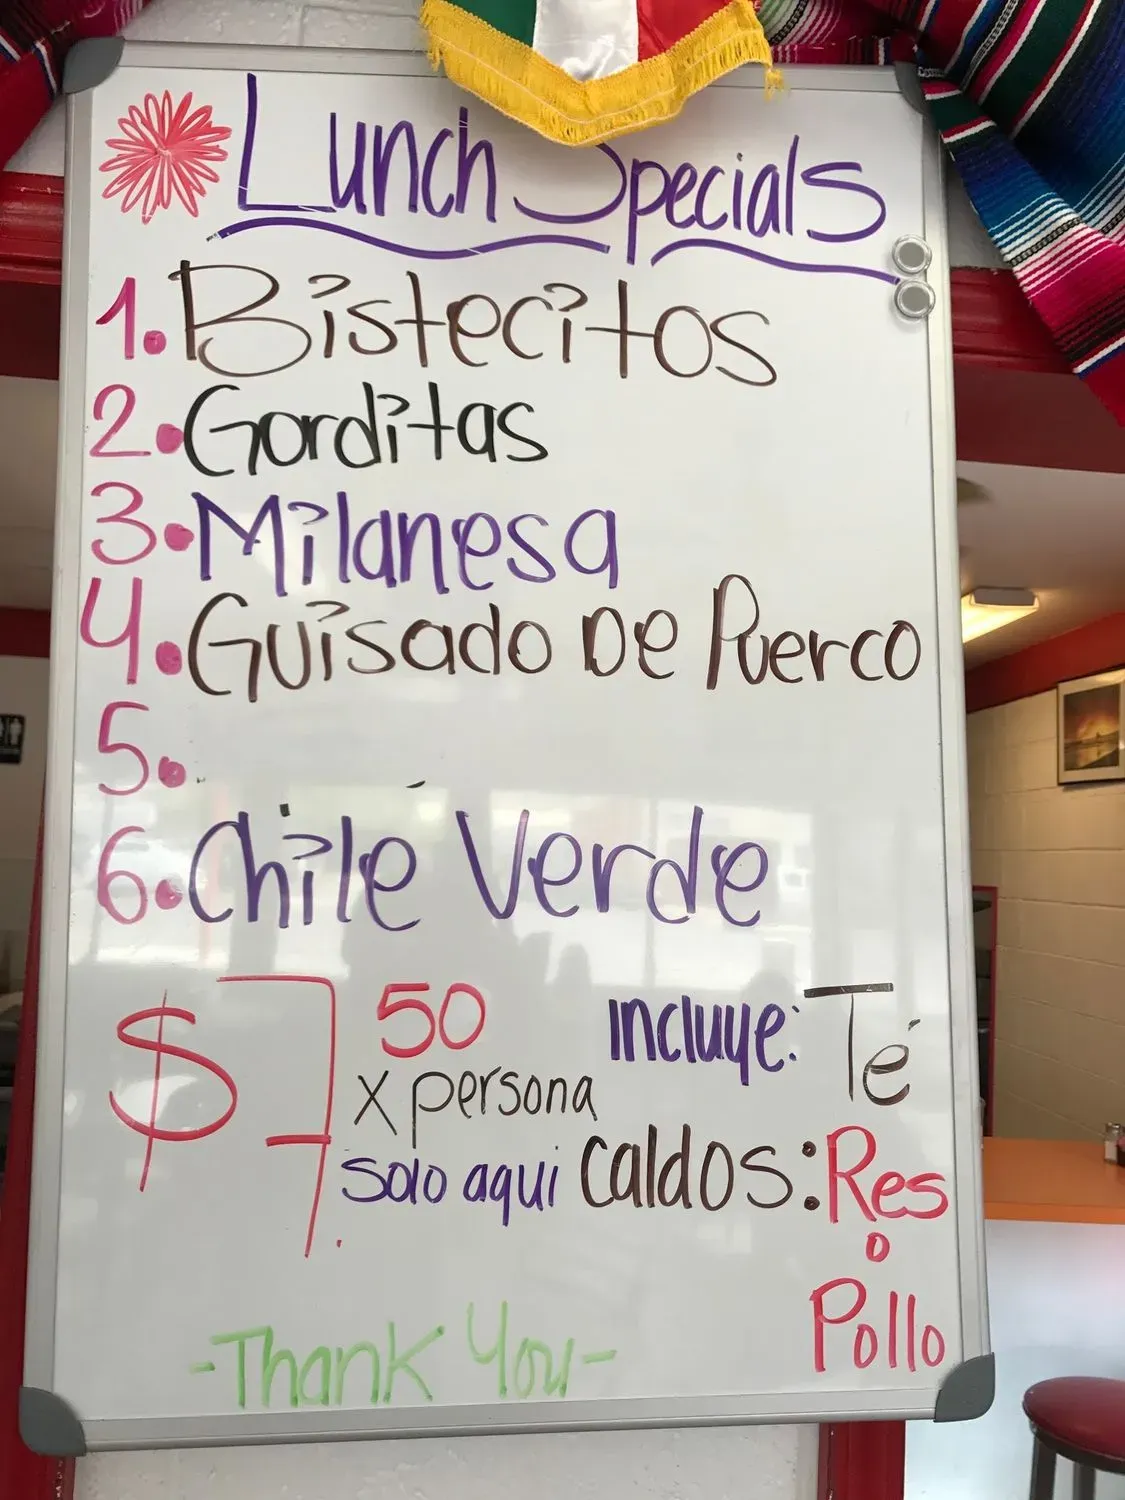 Lunch Specials
1. Bistecitos
2. Gorditas
3. Milanesa
4. Guisado De Puerco
5.
6. Chile Verde
$7 50 incluye: Té
x persona
solo aqui caldos: Res
o
Pollo
-Thank You-